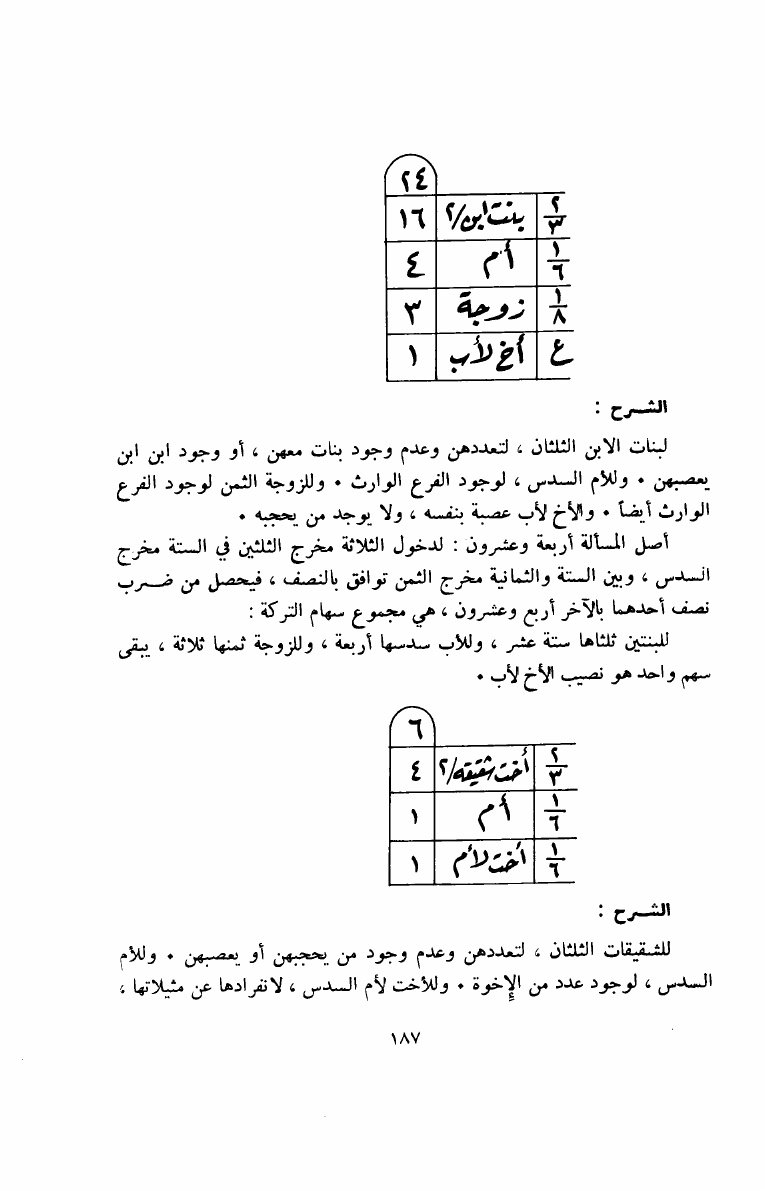 ٢٤
٢/٣ بنت ابن/٢ ١٦
١/٦ أم ٤
١/٨ زوجة ٣
ع أخ لأب ١
الشـرح :
لبنات الابن الثلثان ، لتعددهن وعدم وجود بنات معهن ، أو وجود ابن ابن
يعصبهن ٠ وللأم السدس ، لوجود الفرع الوارث ٠ وللزوجة الثمن لوجود الفرع
الوارث أيضاً ٠ والأخ لأب عصبة بنفسه ، ولا يوجد من يحجبه ٠
أصل المسألة أربعة وعشرون : لدخول الثلاثة مخرج الثلثين في الستة مخرج
السدس ، وبين الستة والثمانية مخرج الثمن توافق بالنصف ، فيحصل من ضـرب
نصف أحدهما بالآخر أربع وعشرون ، هي مجموع سهام التركة :
للبنتين ثلثاها ستة عشر ، وللأب سدسها أربعة ، وللزوجة ثمنها ثلاثة ، يبقى
سهم واحد هو نصيب الأخ لأب ٠
٦
٢/٣ أخت شقيقه/٢ ٤
١/٦ أم ١
١/٦ أخت لأم ١
الشـرح :
للشقيقات الثلثان ، لتعددهن وعدم وجود من يحجبهن أو يعصبهن ٠ وللأم
السدس ، لوجود عدد من الإخوة ٠ وللأخت لأم السدس ، لانفرادها عن مثيلاتها ،
١٨٧